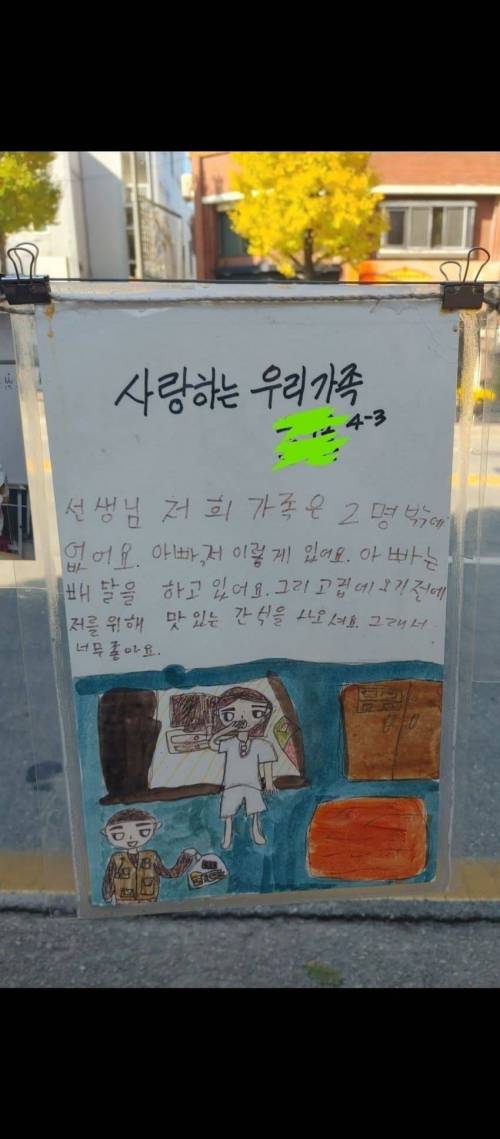 사랑하는 우리가족
4-3
선생님 저희 가족은 2명밖에
없어요. 아빠,저 이렇게 있어요. 아빠는
배달을 하고 있어요. 그리고 집에 오기 전에
저를 위해 맛있는 간식을 사오셔요. 그래서
너무 좋아요.